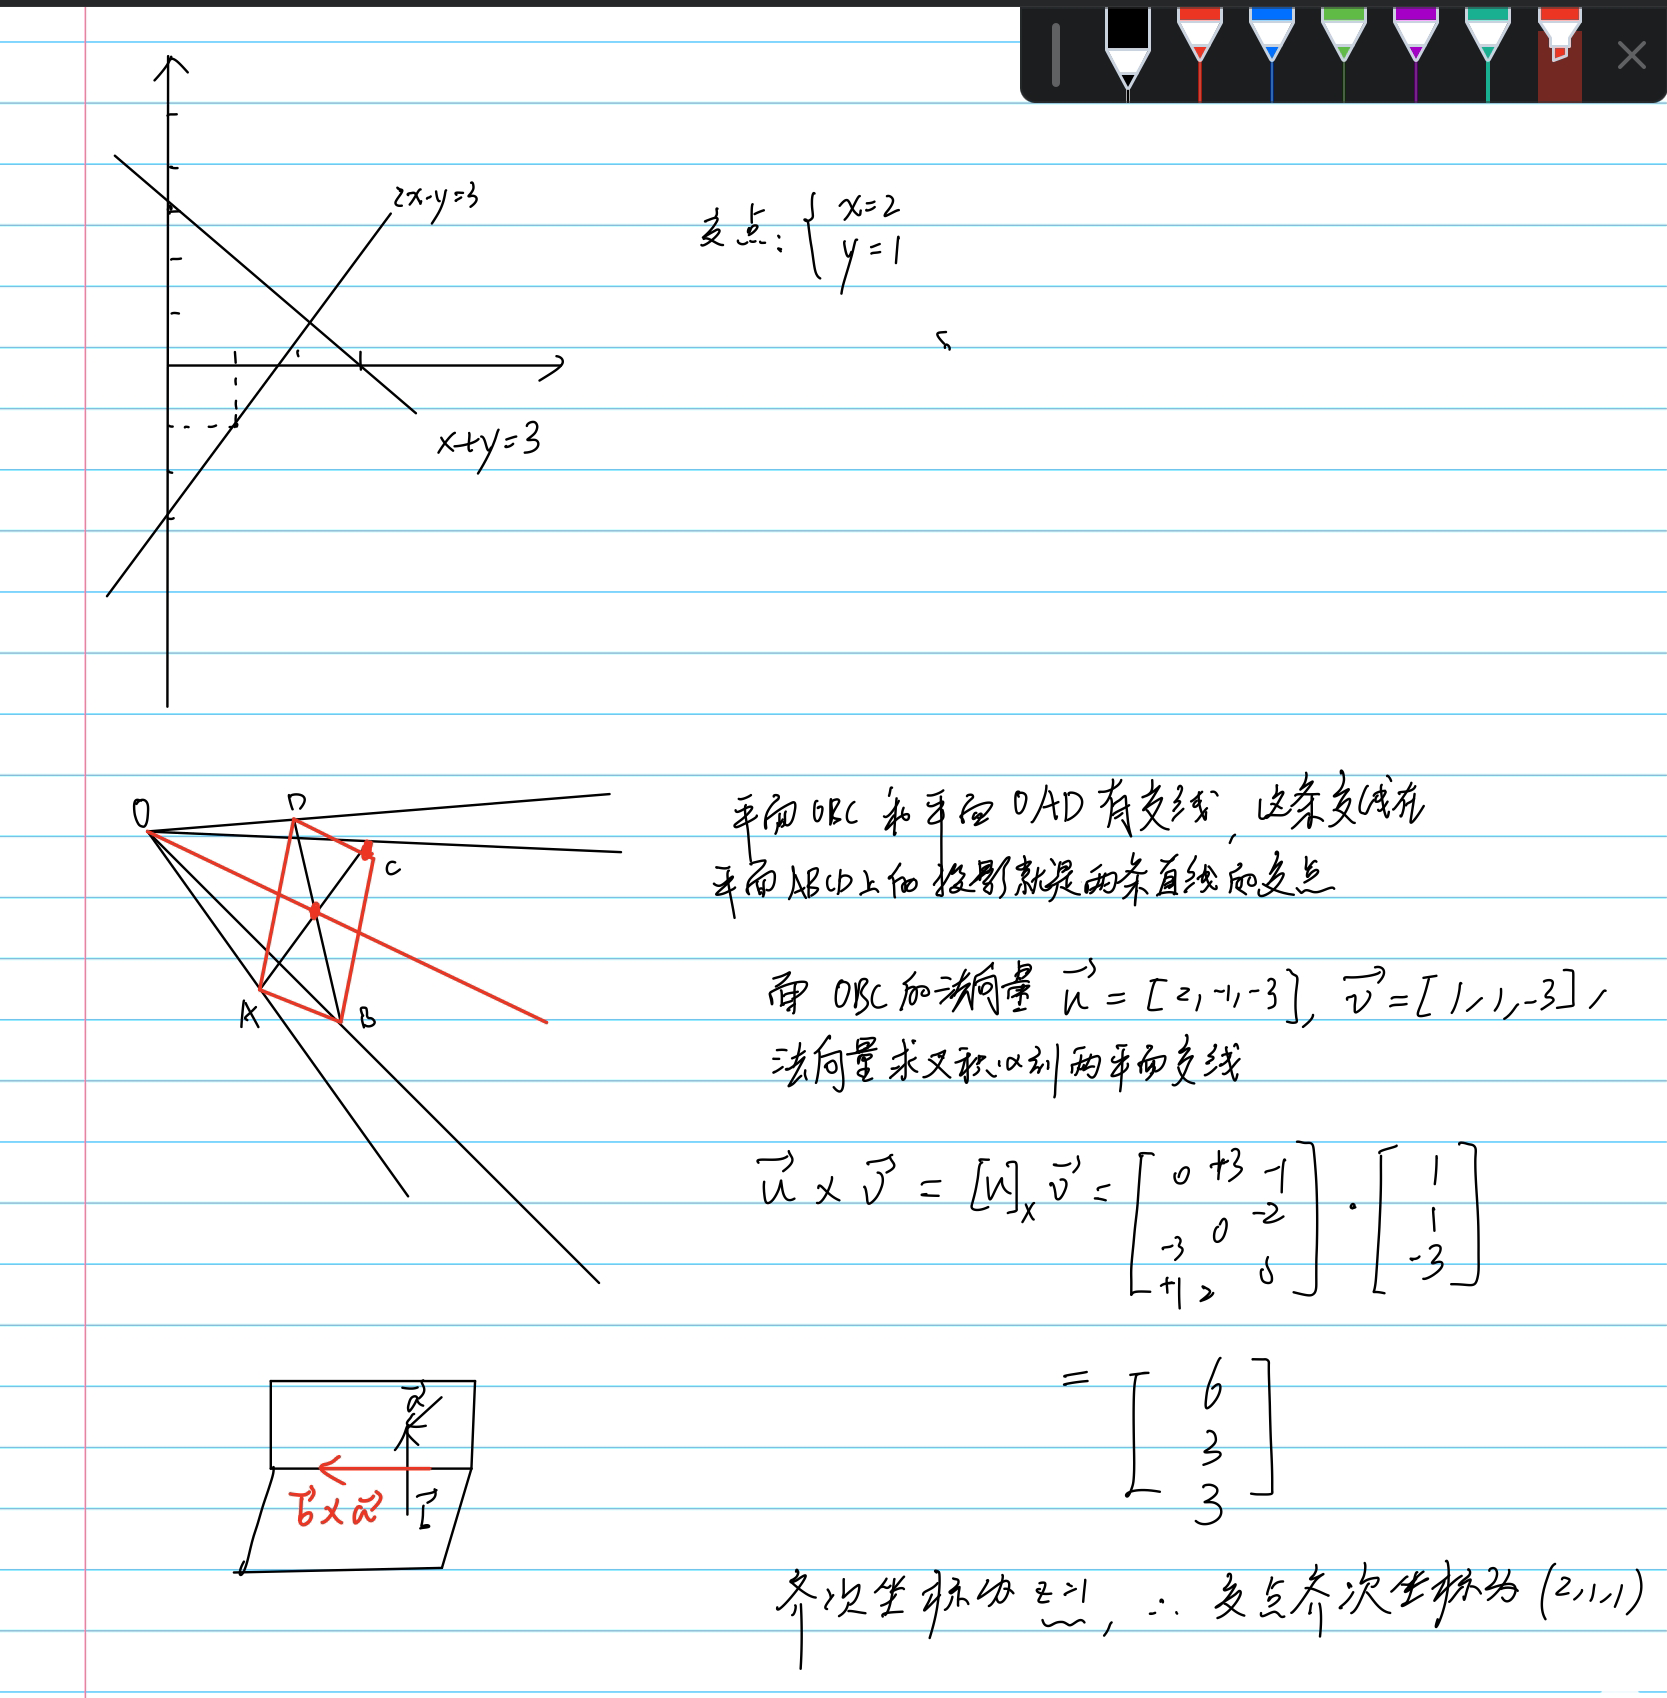 2x-y=3
交点: { x=2
y=1
x+y=3
O D C A B
平面OBC 和平面 OAD 有交线, 这条交线在
平面ABCD上的投影就是两条直线的交点
面 OBC 的法向量 u⃗ = [2,-1,-3], v⃗ = [1,1,-3],
法向量求叉积得到两平面交线
u⃗ × v⃗ = [u]ₓ v⃗ = [ 0 +3 -1 ] · [ 1 ]
-3 0 -2 1
+1 2 0 -3
= [ 6
3
3 ]
a⃗
b⃗×a⃗ b⃗
齐次坐标为 z=1, ∴ 交点齐次坐标为 (2,1,1)